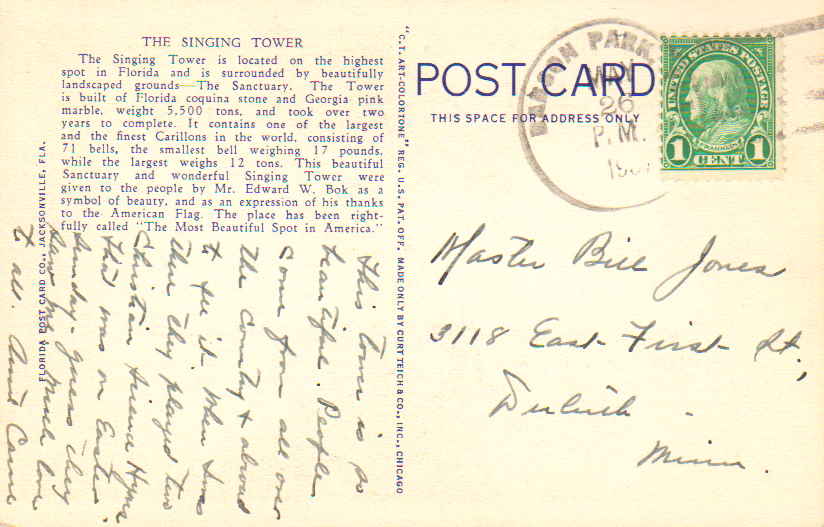 THE SINGING TOWER
The Singing Tower is located on the highest
spot in Florida and is surrounded by beautifully
landscaped grounds—The Sanctuary. The Tower
is built of Florida coquina stone and Georgia pink
marble, weight 5,500 tons, and took over two
years to complete. It contains one of the largest
and the finest Carillons in the world, consisting of
71 bells, the smallest bell weighing 17 pounds,
while the largest weighs 12 tons. This beautiful
Sanctuary and wonderful Singing Tower were
given to the people by Mr. Edward W. Bok as a
symbol of beauty, and as an expression of his thanks
to the American Flag. The place has been right-
fully called "The Most Beautiful Spot in America."
This tower is so
beautiful. People
come from all over
the country & abroad
to see it. When I was
there they played two
Christian Science Hymns
that was on Easter
Sunday - guess they
saw me. Much love
to all. Aunt
FLORIDA POST CARD CO., JACKSONVILLE, FLA.
"C.T. ART-COLORTONE" REG. U.S. PAT. OFF. MADE ONLY BY CURT TEICH & CO., INC., CHICAGO
POST CARD
THIS SPACE FOR ADDRESS ONLY
BABSON PARK,
26
P.M.
UNITED STATES POSTAGE
FRANKLIN
1 CENT 1
Master Bill Jones
3118 East First St.,
Duluth -
Minn.